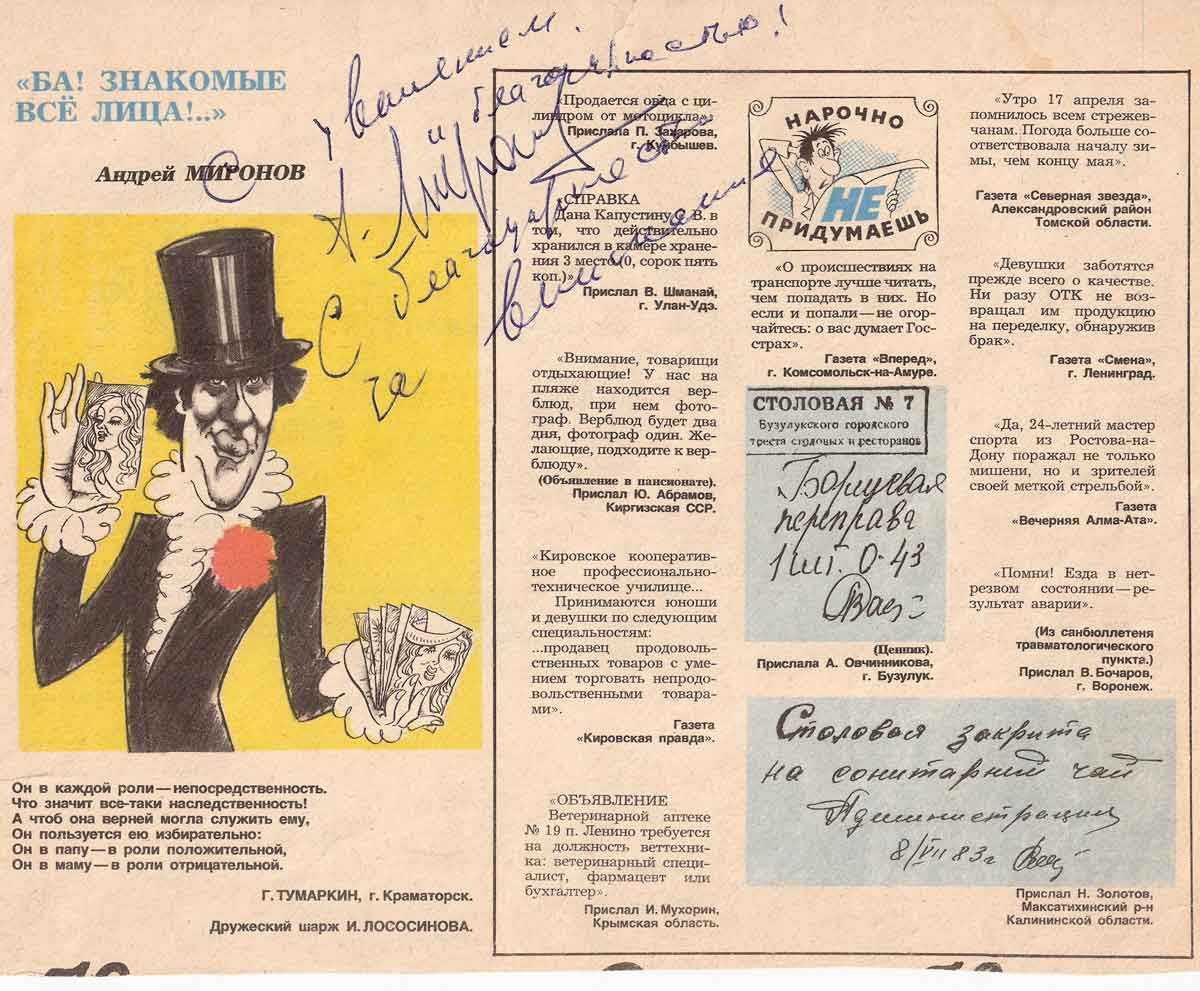 «БА! ЗНАКОМЫЕ
ВСЁ ЛИЦА!..»
Андрей МИРОНОВ
С уважением
и благодарностью!
А. Миронов
С благодарностью
за внимание
Он в каждой роли — непосредственность.
Что значит все-таки наследственность!
А чтоб она верней могла служить ему,
Он пользуется ею избирательно:
Он в папу — в роли положительной,
Он в маму — в роли отрицательной.
Г. ТУМАРКИН, г. Краматорск.
Дружеский шарж И. ЛОСОСИНОВА.
«Продается овца с ци-
линдром от мотоцикла».
Прислала П. Захарова,
г. Куйбышев.
«СПРАВКА
Дана Капустину В. В. в
том, что действительно
хранился в камере хране-
ния 3 место (0, сорок пять
коп.)»
Прислал В. Шманай,
г. Улан-Удэ.
«Внимание, товарищи
отдыхающие! У нас на
пляже находится вер-
блюд, при нем фото-
граф. Верблюд будет два
дня, фотограф один. Же-
лающие, подходите к вер-
блюду».
(Объявление в пансионате).
Прислал Ю. Абрамов,
Киргизская ССР.
«Кировское кооператив-
ное профессионально-
техническое училище...
Принимаются юноши
и девушки по следующим
специальностям:
...продавец продоволь-
ственных товаров с уме-
нием торговать непродо-
вольственными товара-
ми».
Газета
«Кировская правда».
«ОБЪЯВЛЕНИЕ
Ветеринарной аптеке
№ 19 п. Ленино требуется
на должность веттехни-
ка: ветеринарный специ-
алист, фармацевт или
бухгалтер».
Прислал И. Мухорин,
Крымская область.
НАРОЧНО
НЕ
ПРИДУМАЕШЬ
«О происшествиях на
транспорте лучше читать,
чем попадать в них. Но
если и попали — не огор-
чайтесь: о вас думает Гос-
страх».
Газета «Вперед»,
г. Комсомольск-на-Амуре.
СТОЛОВАЯ № 7
Бузулукского городского
треста столовых и ресторанов
Борщевая
переправа
1 шт. 0-43
(Ценник).
Прислала А. Овчинникова,
г. Бузулук.
«Утро 17 апреля за-
помнилось всем стрежев-
чанам. Погода больше со-
ответствовала началу зи-
мы, чем концу мая».
Газета «Северная звезда»,
Александровский район
Томской области.
«Девушки заботятся
прежде всего о качестве.
Ни разу ОТК не воз-
вращал им продукцию
на переделку, обнаружив
брак».
Газета «Смена»,
г. Ленинград.
«Да, 24-летний мастер
спорта из Ростова-на-
Дону поражал не только
мишени, но и зрителей
своей меткой стрельбой».
Газета
«Вечерняя Алма-Ата».
«Помни! Езда в нет-
резвом состоянии — ре-
зультат аварии».
(Из санбюллетеня
травматологического
пункта.)
Прислал В. Бочаров,
г. Воронеж.
Столовая закрита
на сонитарней чай
Администрация
8/VII 83г
Прислал Н. Золотов,
Максатихинский р-н
Калининской области.